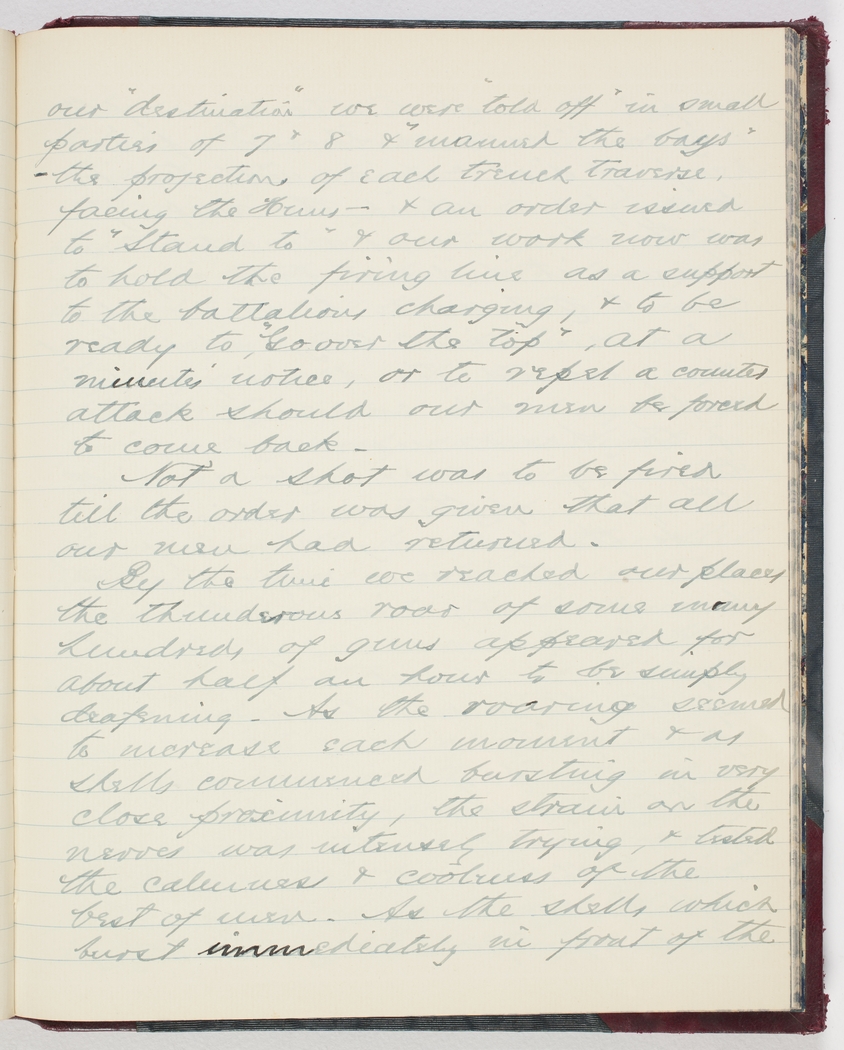 our "destination" we were "told off" in small
parties of 7 & 8 & "manned the bays"
- the projections of each trench traverse,
facing the Huns - & an order issued
to "Stand to" & our work now was
to hold the firing line as a support
to the battalions charging, & to be
ready to, "Go over the top", at a
minutes' notice, or to repel a counter
attack should our men be forced
to come back -
Not a shot was to be fired
till the order was given that all
our men had returned.
By the time we reached our places
the thunderous roar of some many
hundreds of guns appeared for
about half an hour to be simply
deafening - As the roaring seemed
to increase each moment & as
shells commenced bursting in very
close proximity, the strain on the
nerves was intensely trying, & tested
the calmness & coolness of the
best of men. As the shells which
burst immediately in front of the